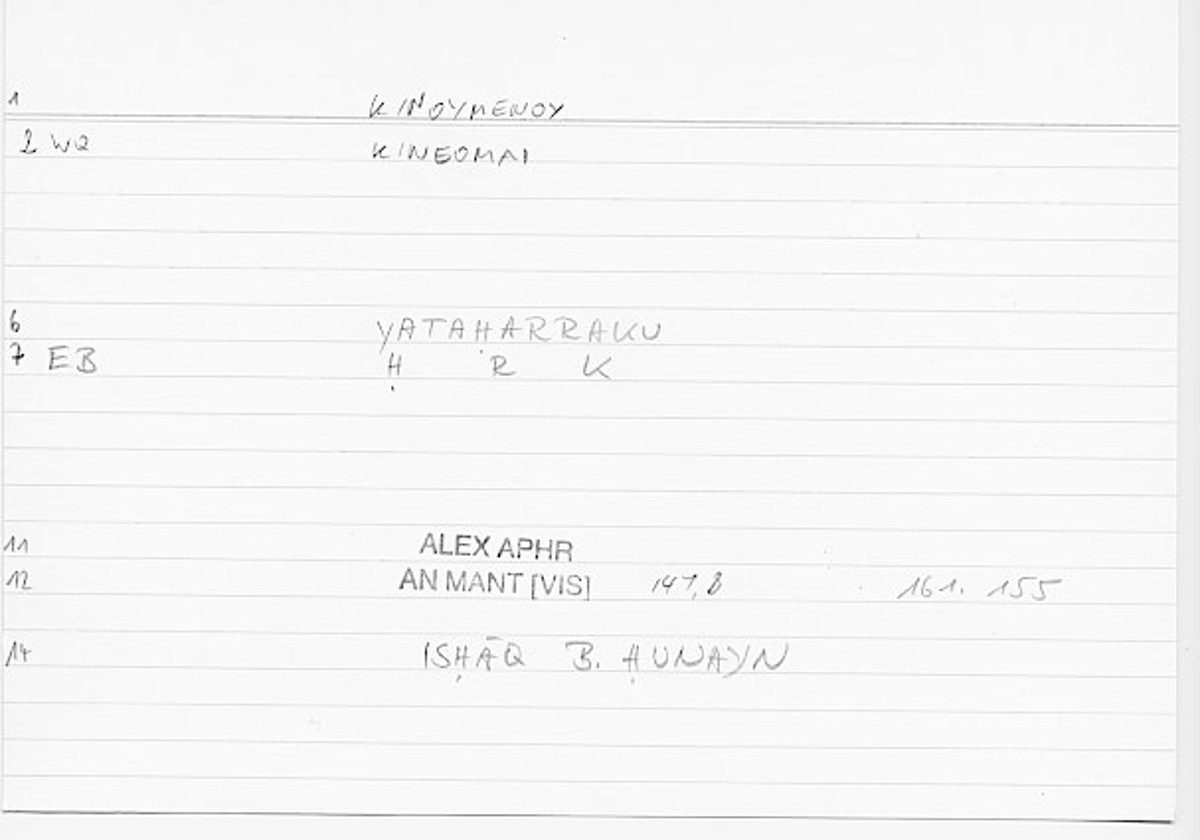 1 KINOYMENOY
2 WQ KINEOMAI
6 YATAḤARRAKU
7 EB Ḥ R K
11 ALEX APHR
12 AN MANT [VIS] 147,8 161. 155
14 ISḤĀQ B. ḤUNAYN